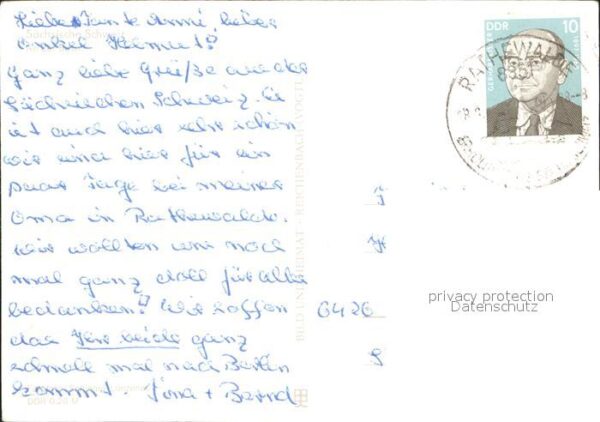 Liebe Tante Anni, lieber
Onkel Helmut!
Ganz liebe Grüße aus der
Sächsischen Schweiz. Es
ist auch hier sehr schön
wir sind hier für ein
paar Tage bei meiner
Oma in Rathewalde.
Wir wollten uns noch
mal ganz doll für alles
bedanken! Wir hoffen
das Ihr beide ganz
schnell mal nach Berlin
kommt.
+ Bernd
BILD UND HEIMAT · REICHENBACH (VOGTL
DDR
10
RATHEWALDE
6426
privacy protection
Datenschutz